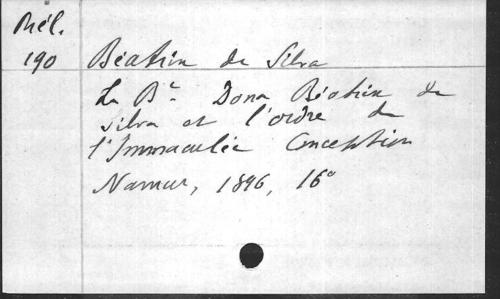 Mél.
190 Béatrix de Silva
La Bse Dona Béatrix de
Silva et l'ordre de
l'Immaculée Conception
Namur, 1896, 16°